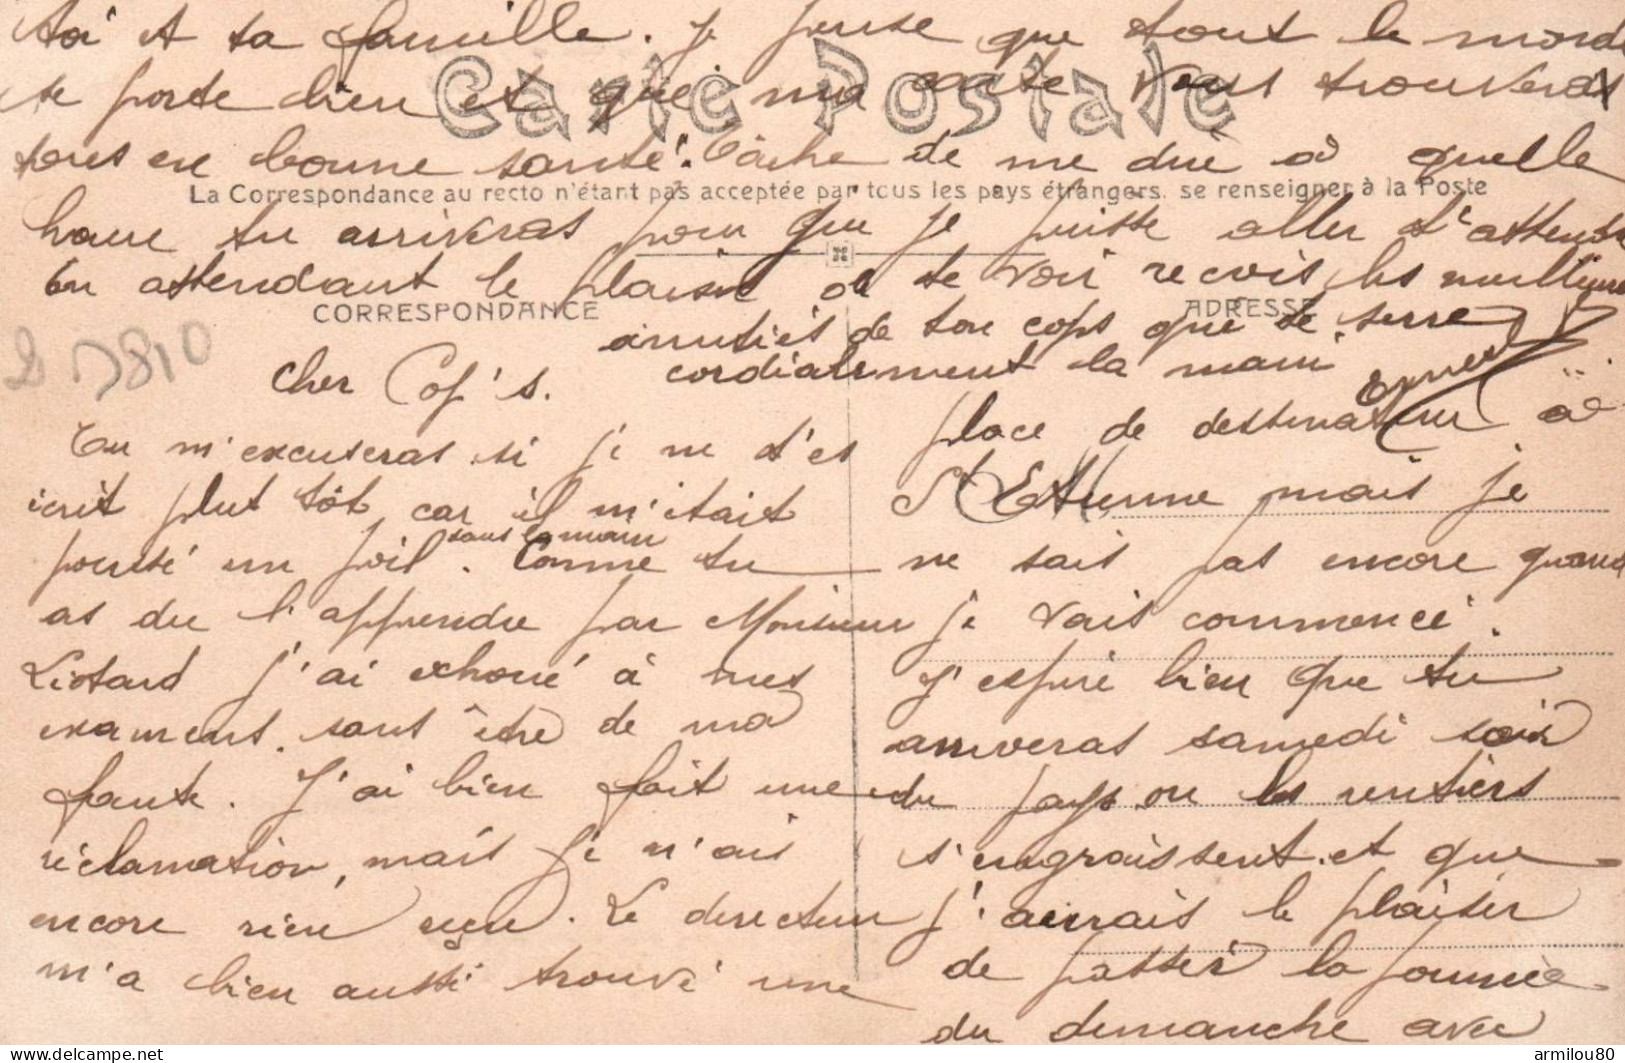 Carte Postale
La Correspondance au recto n'étant pas acceptée par tous les pays étrangers. se renseigner à la Poste
CORRESPONDANCE
ADRESSE
D 3810
Cher Cop's.
Tu m'excuseras si je ne t'es
écrit plut tôt car il m'était
poussé un poil sous la main. Comme tu
as du l'apprendre par Monsieur
Liotard j'ai échoué à mes
examens. sans être de ma
faute. J'ai bien fait une
réclamation, mais je n'ais
encore rien reçu. Le directeur
m'a bien aussi trouvé une
place de dessinateur à
St Etienne mais je
ne sais pas encore quand
je vais commencé.
J'espère bien que tu
arriveras samedi soir
du pays ou les rentiers
s'engraissent et que
j'aurais le plaisir
de passer la journée
du dimanche avec
toi et ta famille. Je pense que tout le monde
se porte bien et que ma carte vous trouveras
tous en bonne santé. Tâche de me dire à quelle
heure tu arriveras pour que je puisse aller t'attendre
En attendant le plaisir de te voir reçois les meilleures
amitiés de ton cops que te serre
cordialement la main
Ernest
armilou80